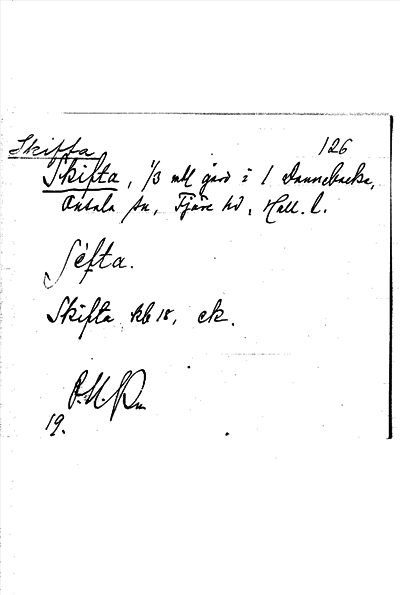 Skifta 126
Skifta, 1/3 mtl gård i 1 Dannebacka,
Onsala sn, Fjäre hd, Hall. l.
Skifta kb 18, ek.
19.